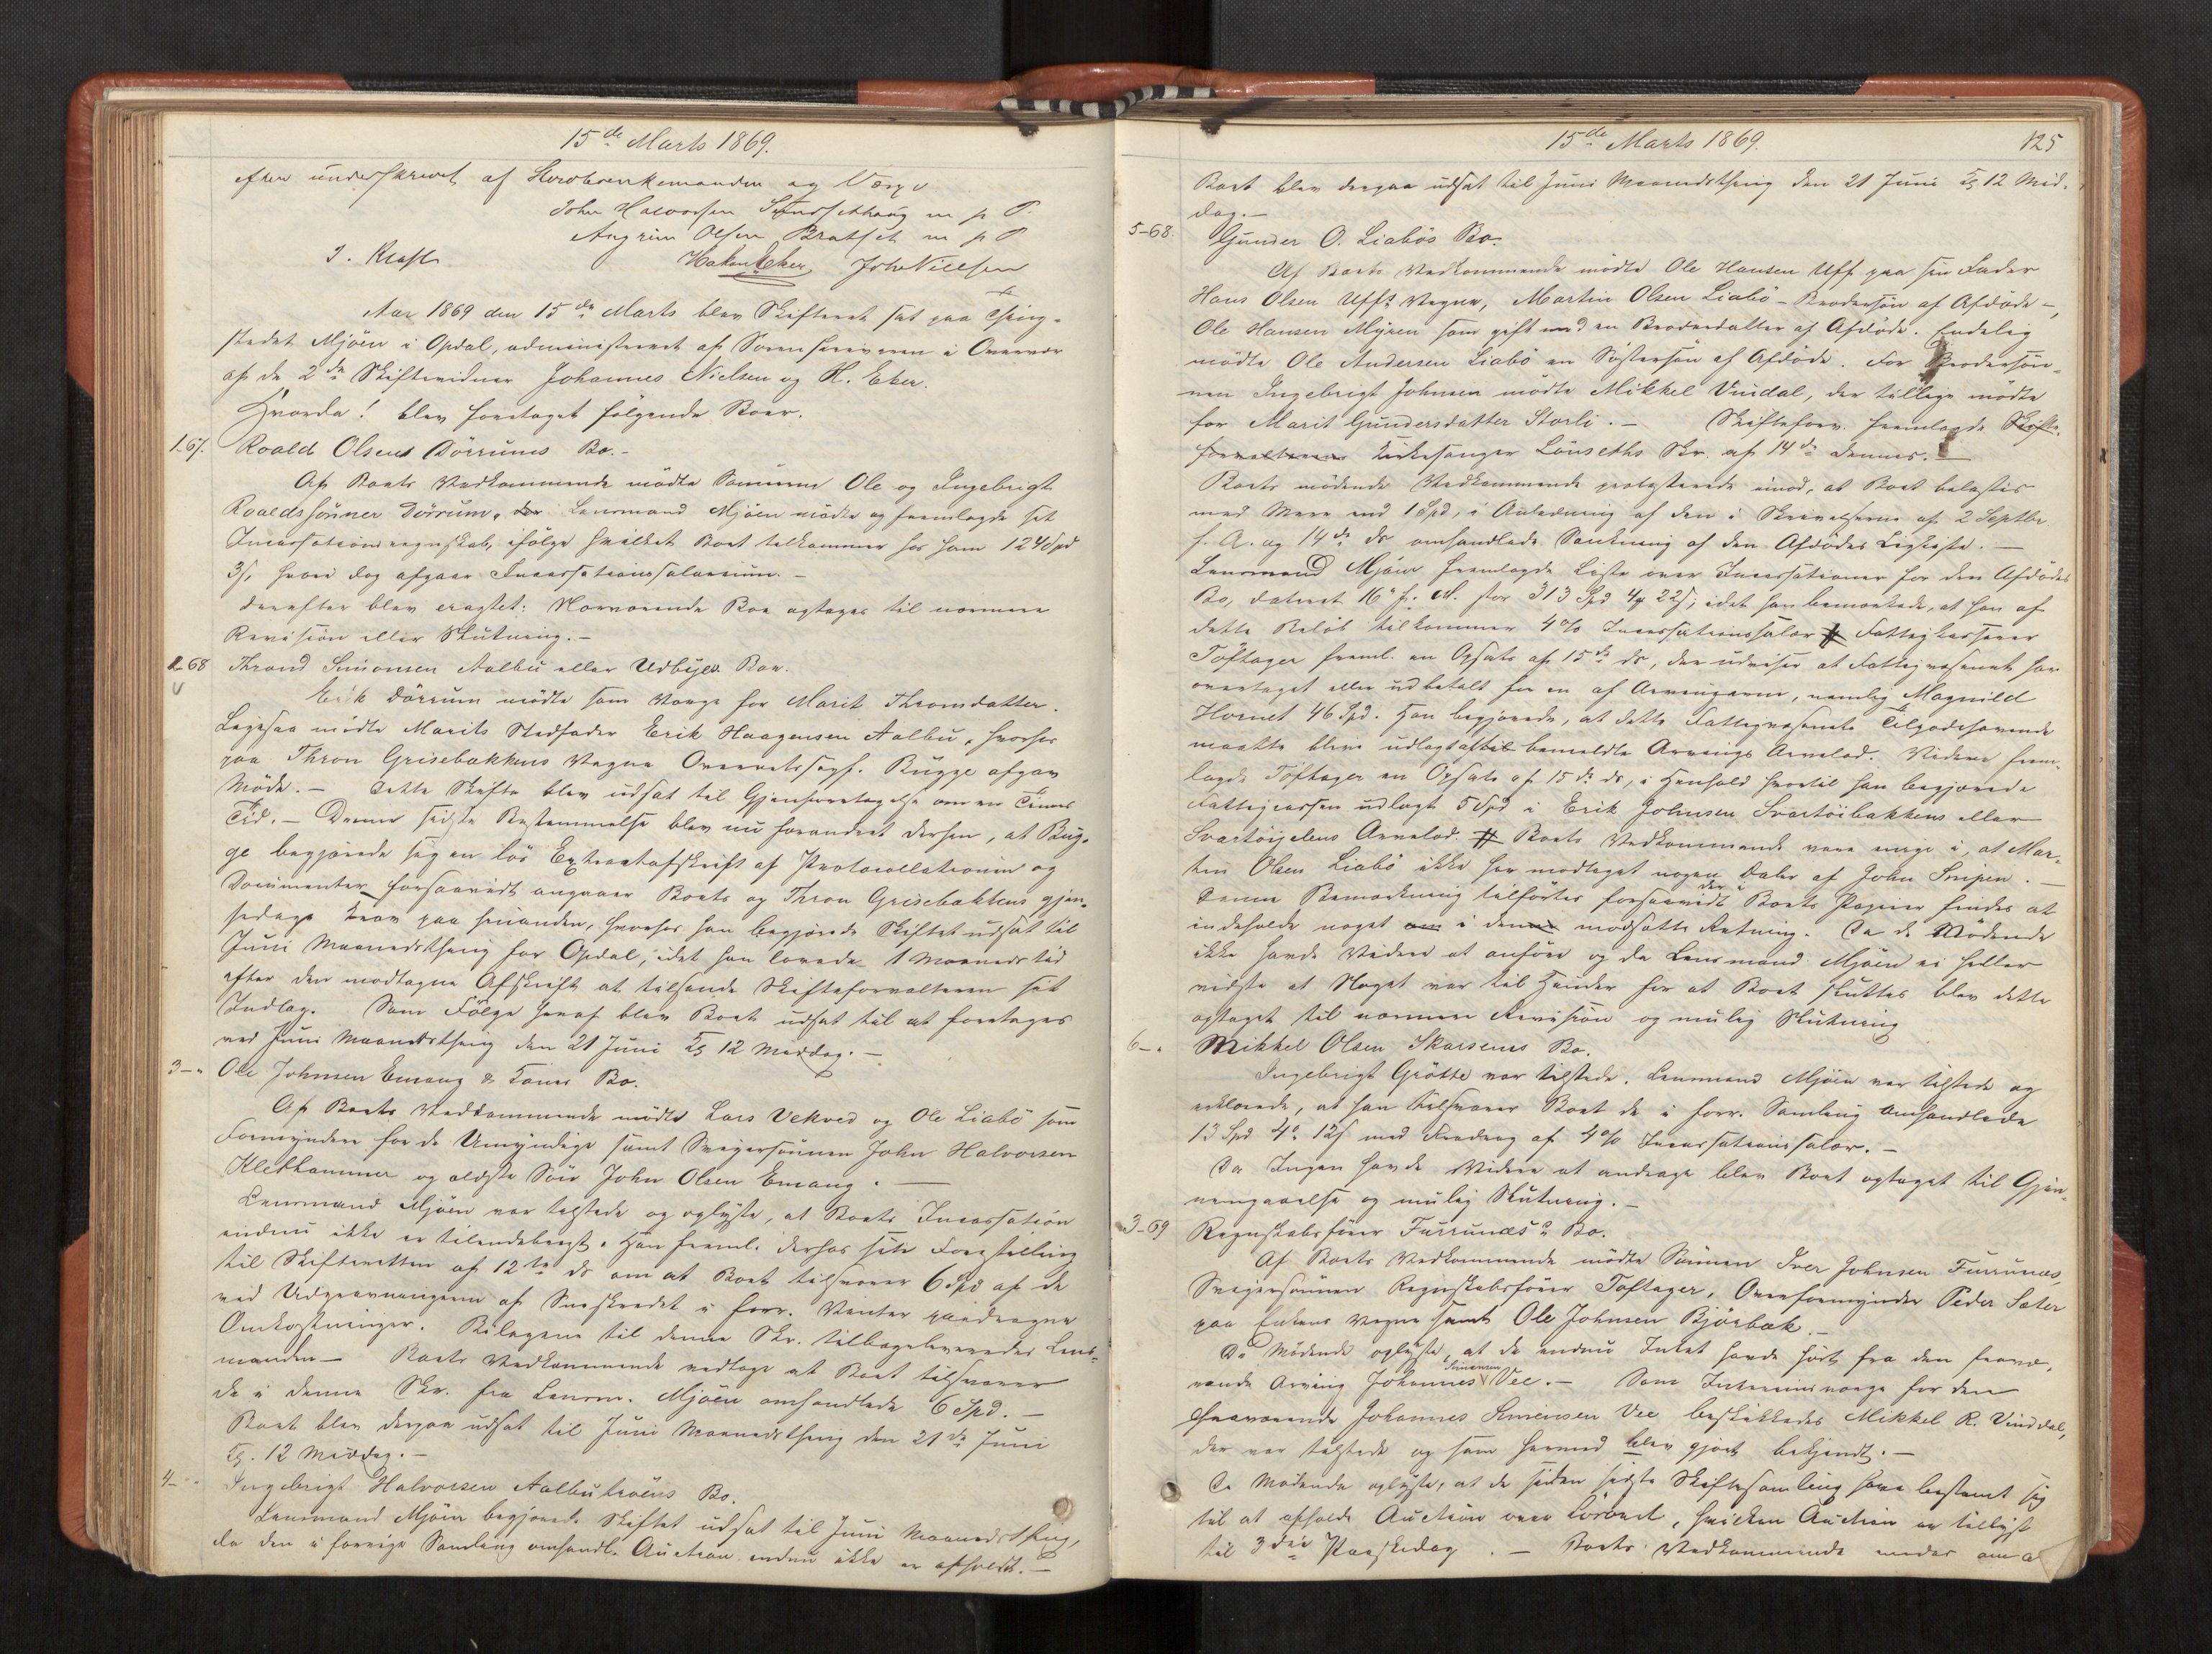 15de Marts 1869.
efter underskrevet af Hovedbrænkemanden og Værge
John Halvorsen m p P.
Angrim Olsen Bratset m p P
J. Krafft Hakon Eker Joh Nielsen
Aar 1869 den 15de Marts blev Skifteret sat paa Thing-
stedet Mjöen i Opdal, administreret af Sorenskriveren i Overvær
af de 2de Skiftevidner Johannes Nielsen og H. Eker.
Hvorda! blev foretaget følgende Boer.
1-67. Roald Olsens Dörrums Bo.-
Af Boets Vedkommende mödte Sönnerne Ole og Ingebrigt
Roaldssönner Dörrum. Lensmand Mjöen mödte og fremlagde sit
Incassationsregnskab, ifölge hvilket Boet tilkommer hos ham 124 Spd
3 s, hvori dog afgaar Incassationssalarium. -
Derefter blev eragtet: Nærværende Boe optages til nærmere
Revision eller Slutning. -
2-68 Thrond Simonsen Aalbu eller Udbyes Boe.
Erik Dörrum mödte som Værge for Marit Thronsdatter.
Ligesaa mödte Marits Stedfader Erik Haagensen Aalbu, hvorhos
paa Thron Grisebakkens Vegne Overretssagf. Bugge afgav
Möde. - Dette Skifte blev udsat til Gjenforetagelse om en Times
Tid. - Denne sidste Bestemmelse blev nu forandret derhen, at Bug-
ge begjærede sig en lös Extractafskrift af Protocollationen og
Documenter forsaavidt angaaer Boets og Thron Grisebakkens gjen-
sidige Krav paa hinanden, hvorhos han begjærede Skiftet udsat til
Juni Maanedsthing for Opdal, idet han lovede 1 Maaneds tid
efter den modtagne Afskrift at tilsende Skifteforvalteren sit
Indlæg. Som Fölge heraf blev Boet udsat til at foretages
ved Juni Maanedsthing den 21 Juni Kl 12 Middag. -
3-" Ole Johnsen Emaug & Kones Bo.
Af Boets Vedkommende mödte Lars Vekved og Ole Liabö som
Formyndere for de Umyndige samt Svigersönnen John Halvorsen
Klethammer og ældste Sön John Olsen Emaug. -
Lensmand Mjöen var tilstede og oplyste, at Boets Incassation
endnu ikke er tilendebragt. Han freml. derhos sin Forestilling
til Skifteretten af 12te ds om at Boet tilsvarer 6 Spd af de
ved Udgravningen af Sneskredet i forr. Vinter paadragne
Omkostninger. Bilagene til denne Skr. tilbageleveredes Lens-
manden - Boets Vedkommende vedtage at Boet tilsvarer
de i denne Skr. fra Lensm. Mjöen omhandlede 6 Spd. -
Boet blev derpaa udsat til Juni Maanedsthing den 21de Juni
Kl. 12 Middag. -
4- " Ingebrigt Halvorsen Aalbutröens Bo.
Lensmand Mjöen begjærede Skiftet udsat til Juni Maanedsthing,
da den i forrige Samling omhandl. Auction endnu ikke er afholdt. -
15de Marts 1869. 125
Boet blev derpaa udsat til Juni Maanedsthing den 21 Juni Kl 12 Mid-
dag. -
5-68. Gunder O. Liabös Bo.
Af Boets Vedkommende mödte Ole Hansen Uff paa sin Fader
Hans Olsen Uffs Vegne, Martin Olsen Liabö - Brodersön af Afdöde -,
Ole Hansen Myren som gift med en Broderdatter af Afdöde. Endelig
mödte Ole Andersen Liabö en Söstersön af Afdöde. For Brodersön-
nen Ingebrigt Johnsen mödte Mikkel Vindal, der tillige mödte
for Marit Gundersdatter Storli. - Skifteforv. fremlagde Skifte-
forvalteren Kirkesanger Lönseths Skr. af 14de dennes. -
Boets mödende Vedkommende protesterede imod, at Boet belastes
med Mere end 1 Spd, i Anledning af den i Skrivelserne af 2 Septbr
f. A. og 14de ds omhandlede Sænkning af den Afdödes Ligkiste. -
Lensmand Mjöen fremlagde Liste over Incassationer for den Afdödes
Bo, dateret 16de f. M. stor 313 Spd 4 ort 22 s, idet han bemærkede, at han af
dette Belöb tilkommer 4 % Incassationssalær # Fattigkasserer
Töftager freml. en Opsats af 15de ds, der udviser at Fattigvæsenet har
overtaget eller udbetalt for en af Arvingerne, nemlig Magnild
Hornet 46 Spd. Han begjærede, at dette Fattigvæsenets Tilgodehavende
maatte blive udlagt af bemeldte Arvings Arvelod. Videre frem-
lagde Töftager en Opsats af 15de ds, i Henhold hvortil han begjærede
Fattigcassen udlagt 5 Spd i Erik Johnsen Svartöibakkens eller
Svartöiyelens Arvelod. # Boets Vedkommende vare enige i, at Mar-
tin Olsen Liabö ikke har modtaget nogen Daler af John Snipen. -
Denne Bemærkning tilförtes forsaavidt der i Boets Papirer findes at
indeholde noget om i denne modsatte Retning. Da de Mödende
ikke havde Videre at anföre og da Lensmand Mjöen ei heller
vidste at Noget var til Hinder for at Boet sluttes blev dette
optaget til nærmere Revision og mulig Slutning
6-" Mikkel Olsen Skarsems Bo.
Ingebrigt Grötte var tilstede. Lensmand Mjöen var tilstede og
erklærede, at han tilsvarer Boet de i forr. Samling omhandlede
13 Spd 4 ort 12 s med Fradrag af 4 % Incassationssalær. -
Da Ingen havde Videre at andrage blev Boet optaget til Gjen-
nemgaaelse og mulig Slutning. -
3-69 Regnskabsförer Furrunæs's Bo.
Af Boets Vedkommende mödte Sönnen Iver Johnsen Furrunæs,
Svigersönnen Regnskabsförer Töftager, Overformynder Peder Sæter
paa Enkens Vegne samt Ole Johnsen Björbæk -
De Mödende oplyste, at de endnu Intet havde hört fra den fravæ-
rende Arving Johannes Simensen Vee. - Som Interimsværge for den
fraværende Johannes Simensen Vee beskikkedes Mikkel R. Vinddal,
der var tilstede og som hermed blev gjort bekjendt. -
De Mödende oplyste, at de siden sidste Skiftesamling have bestemt sig
til at afholde Auction over Lösöret, hvilken Auction er tillyst
til 3die Paaskedag. - Boets Vedkommende enedes om a